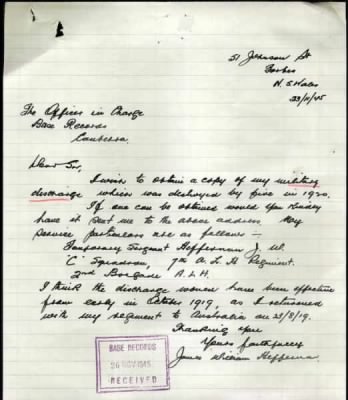 51 Johnson St
Forbes
N. S. Wales
23/11/45
The Officer in Charge
Base Records
Canberra.
Dear Sir,
I wish to obtain a copy of my military
discharge which was destroyed by fire in 1920.
If one can be obtained would you kindly
have it sent me to the above address. My
service particulars are as follows –
Temporary Sergeant Heffernan J. W.
"C" Squadron, 7th A. L. H Regiment.
2nd Brigade A. L. H.
I think the discharge would have been effective
from early in October 1919, as I returned
with my regiment to Australia on 28/8/19.
Thanking you
Yours faithfully
James William Heffernan
BASE RECORDS
26 NOV 1945
RECEIVED